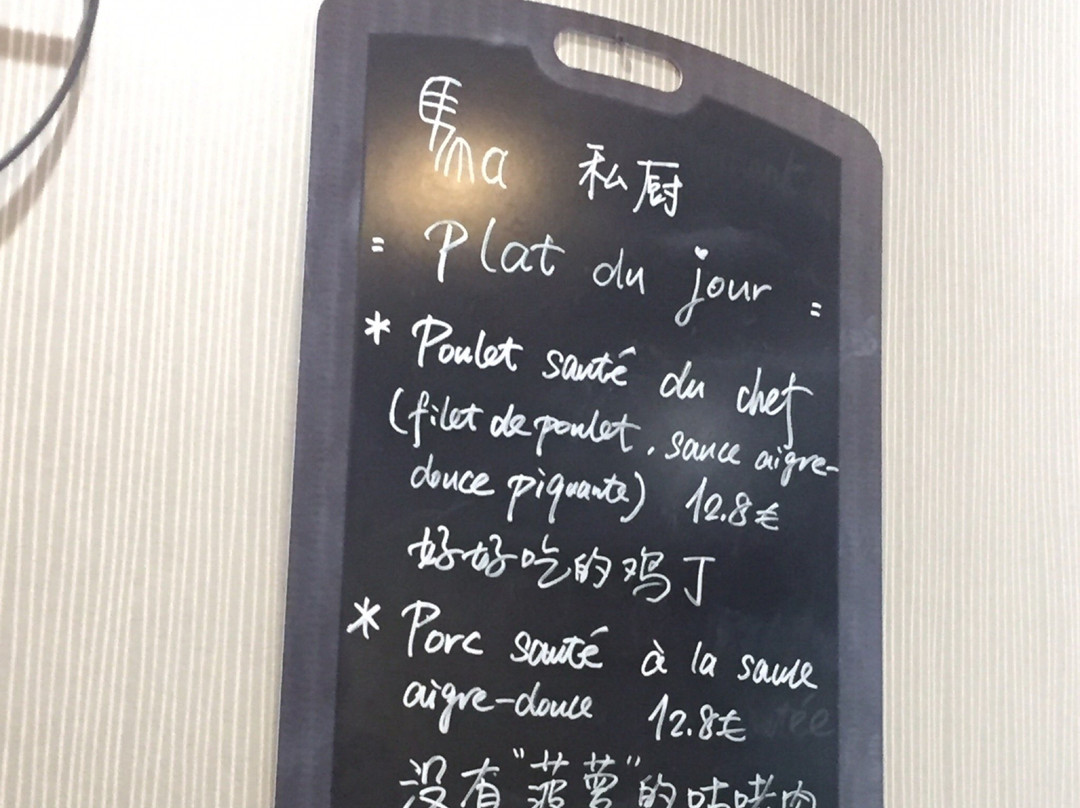 馬ma 私厨
= Plat du jour =
* Poulet sauté du chef
(filet de poulet, sauce aigre-
douce piquante) 12.8€
好好吃的鸡丁
* Porc sauté à la sauce
aigre-douce 12.8€
没有"菠萝"的咕咾肉